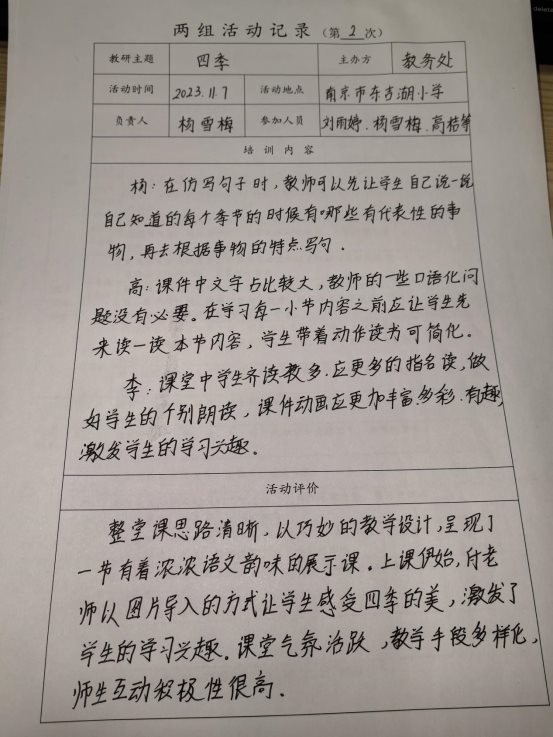 两组活动记录（第 2 次）
教研主题 四季 主办方 教务处
活动时间 2023.11.7 活动地点 南京市东吉湖小学
负责人 杨雪梅 参加人员 刘雨婷、杨雪梅、高桔等
培训内容
杨：在仿写句子时，教师可以先让学生自己说一说
自己知道的每个季节的时候有哪些有代表性的事
物，再去根据事物的特点写句。
高：课件中文字占比较大，教师的一些口语化问
题没有必要。在学习每一小节内容之前应让学生先
来读一读本节内容，学生带着动作读书可简化。
李：课堂中学生齐读较多．应更多的指名读，做
好学生的个别朗读，课件动画应更加丰富多彩．有趣，
激发学生的学习兴趣。
活动评价
整堂课思路清晰，以巧妙的教学设计，呈现了
一节有着浓浓语文韵味的展示课。上课伊始，付老
师以图片导入的方式让学生感受四季的美，激发了
学生的学习兴趣。课堂气氛活跃，教学手段多样化，
师生互动积极性很高．